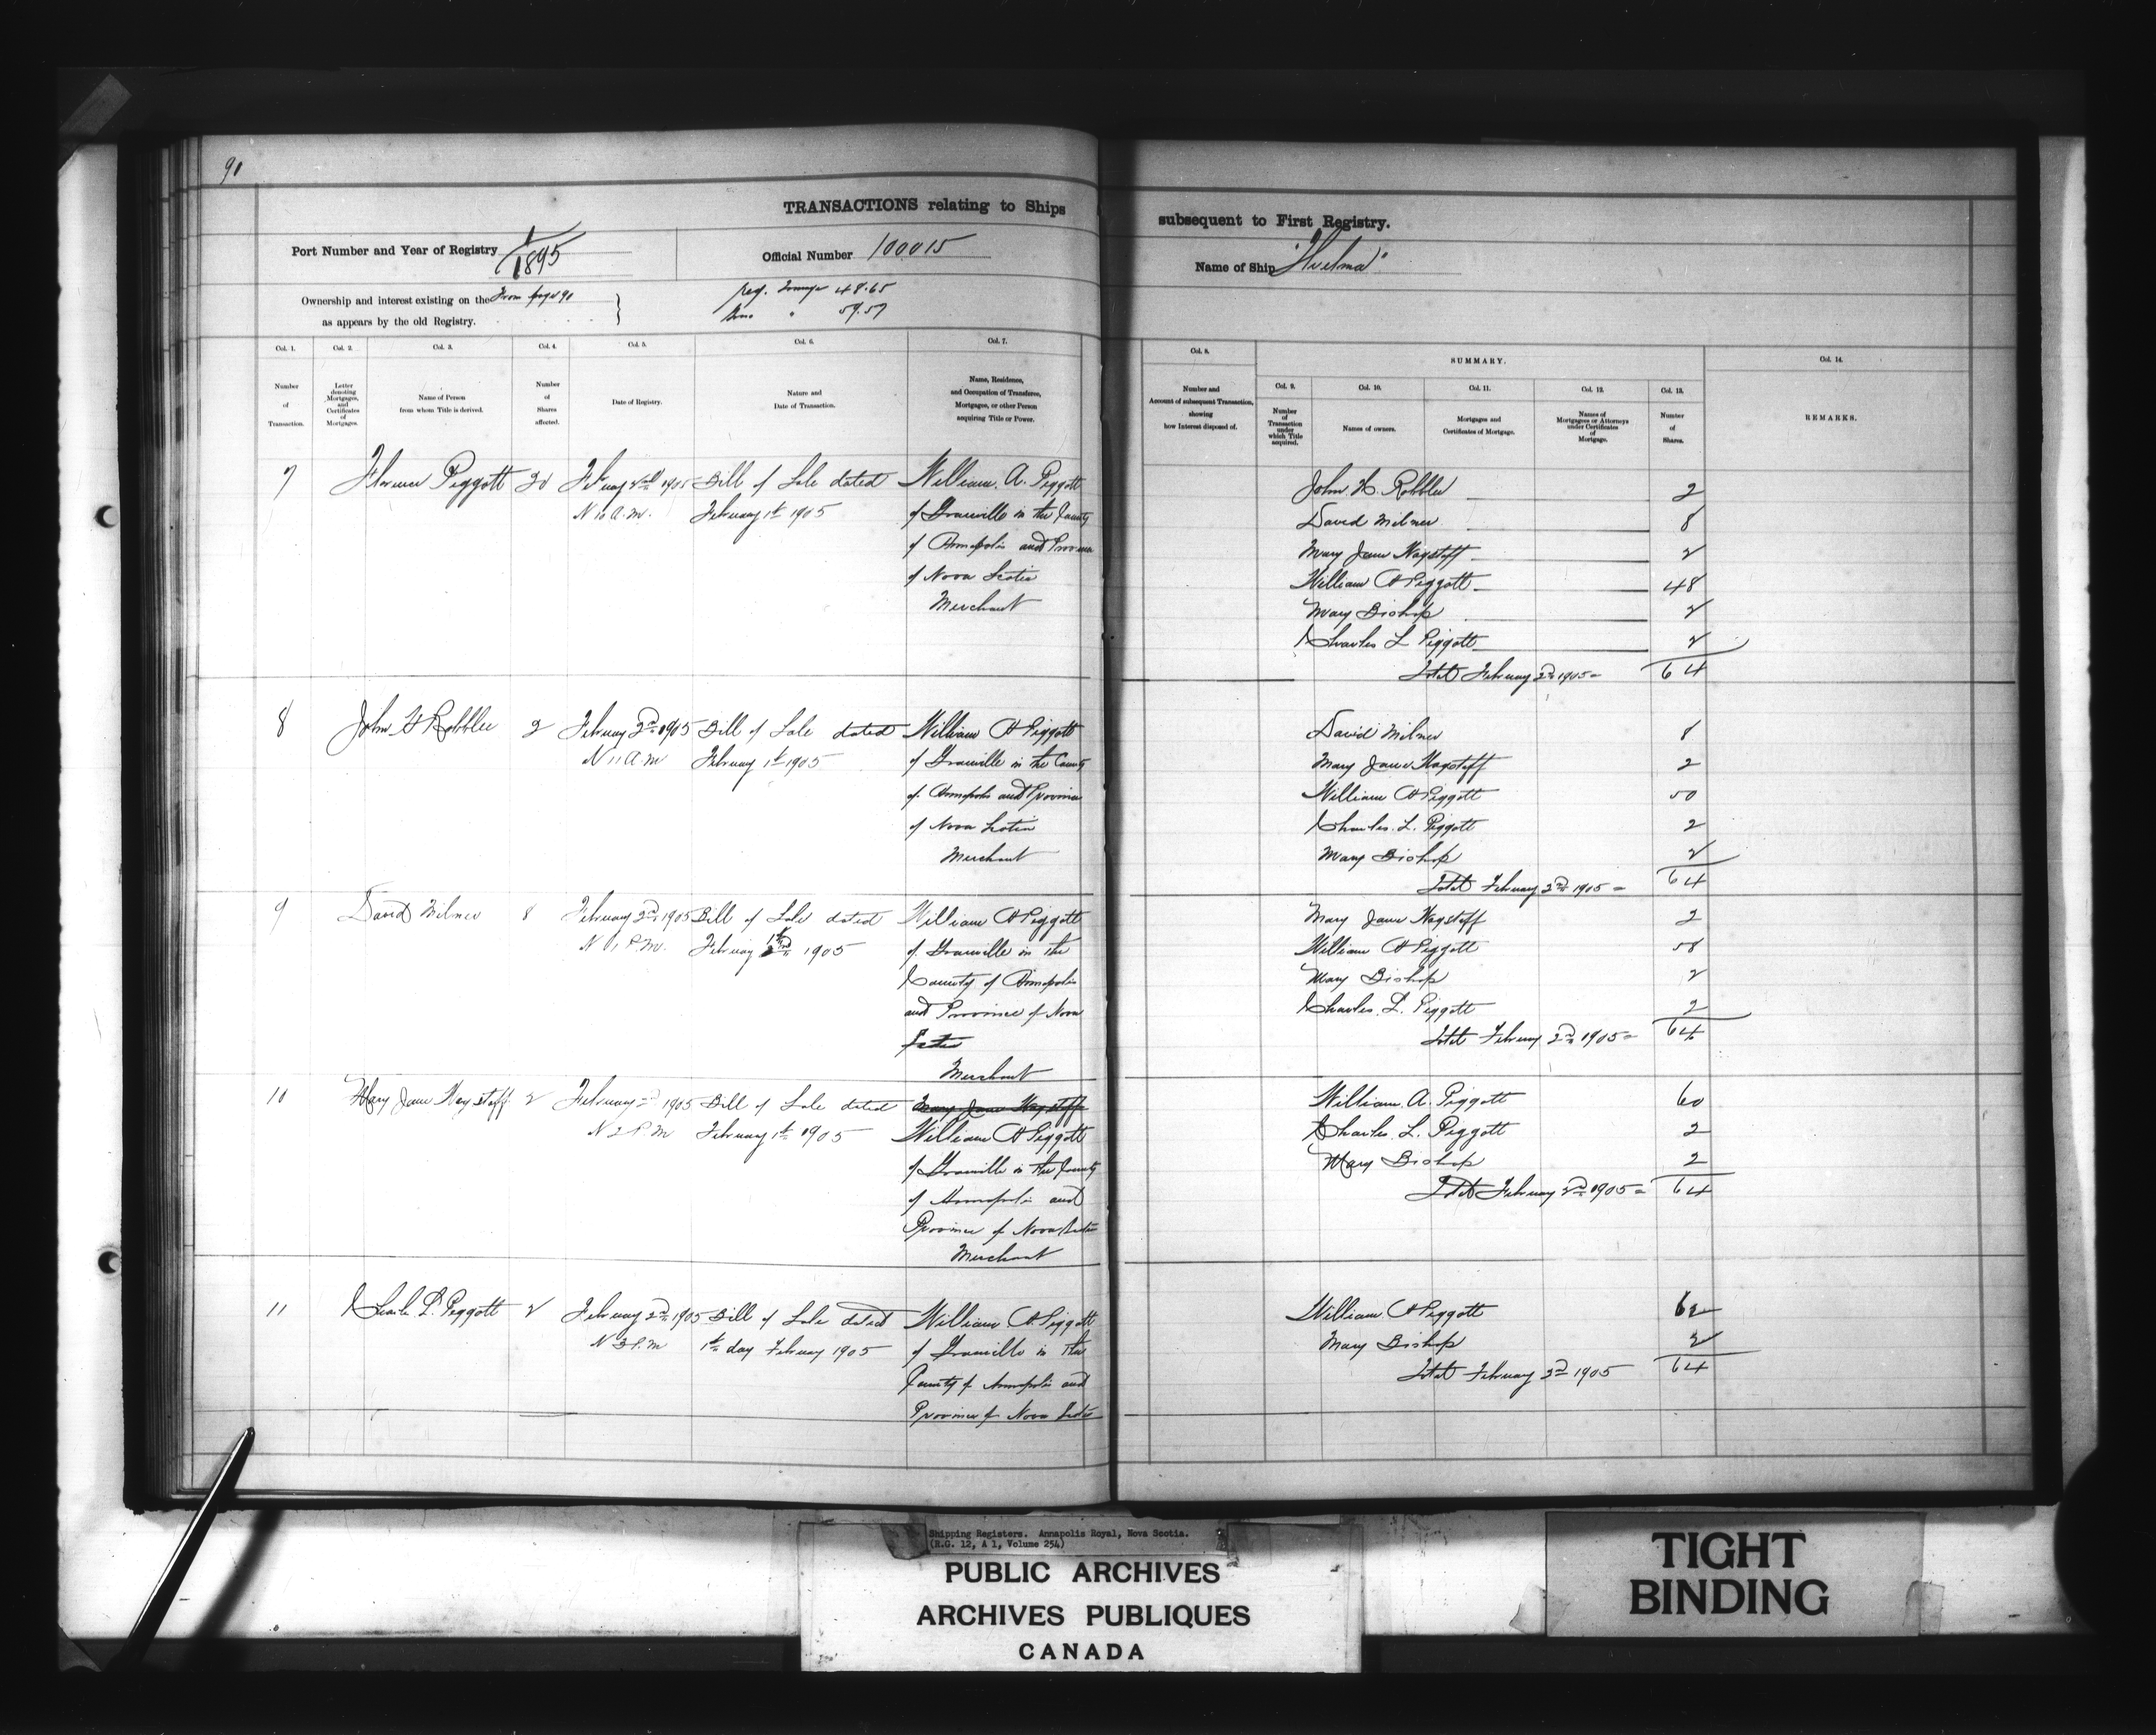 91
TRANSACTIONS relating to Ships subsequent to First Registry.
Port Number and Year of Registry 1/1895
Official Number 100015
Name of Ship "Hulma"
Ownership and interest existing on the From page 90
as appears by the old Registry.
Reg. Tonnage 48.65
Gross " 59.57
Col. 1. Col. 2. Col. 3. Col. 4. Col. 5. Col. 6. Col. 7. Col. 8. SUMMARY. Col. 14.
Col. 9. Col. 10. Col. 11. Col. 12. Col. 13.
Number of Transaction.
Letter denoting Mortgages, and Certificates of Mortgages.
Name of Person from whom Title is derived.
Number of Shares affected.
Date of Registry.
Nature and Date of Transaction.
Name, Residence, and Occupation of Transferee, Mortgagee, or other Person acquiring Title or Power.
Number and Amount of subsequent Transaction, showing how Interest disposed of.
Number of Transaction under which Title acquired.
Names of owners.
Mortgages and Certificates of Mortgage.
Names of Mortgagees or Attorneys under Certificates of Mortgage.
Number of Shares.
REMARKS.
7 Florence Piggott 30 February 2nd 1905 Bill of Sale dated William. A. Piggott
N 10 A.M. February 1st 1905 of Granville in the County
of Annapolis and Province
of Nova Scotia
Merchant
John H. Robblee 2
David Milner 8
Mary Jane Wagstaff 2
William A Piggott 48
Mary Bishop 2
Charles L Piggott 2
Total February 2nd 1905 = 64
8 John H Robblee 2 February 2nd 1905 Bill of Sale dated William A Piggott
N 11 A.M February 1st 1905 of Granville in the County
of Annapolis and Province
of Nova Scotia
Merchant
David Milner 8
Mary Jane Wagstaff 2
William A Piggott 50
Charles. L. Piggott 2
Mary Bishop 2
Total February 2nd 1905 = 64
9 David Milner 8 February 2nd 1905 Bill of Sale dated William A Piggott
N 1 P.M. February 1st 1905 of Granville in the
County of Annapolis
and Province of Nova
Scotia
Merchant
Mary Jane Wagstaff 2
William A Piggott 58
Mary Bishop 2
Charles. L. Piggott 2
Total February 2nd 1905 = 64
10 Mary Jane Wagstaff 2 February 2nd 1905 Bill of Sale dated Mary Jane Wagstaff
N 2 P.M February 1st 1905 William A Piggott
of Granville in the County
of Annapolis and
Province of Nova Scotia
Merchant
William. A. Piggott 60
Charles. L. Piggott 2
Mary Bishop 2
Total February 2nd 1905 = 64
11 Charles L. Piggott 2 February 2nd 1905 Bill of Sale dated William A Piggott
N 3 P.M 1st day February 1905 of Granville in the
County of Annapolis and
Province of Nova Scotia
William A Piggott 62
Mary Bishop 2
Total February 2nd 1905 64
Shipping Registers. Annapolis Royal, Nova Scotia.
(R.G. 12, A 1, Volume 254)
PUBLIC ARCHIVES
ARCHIVES PUBLIQUES
CANADA
TIGHT
BINDING